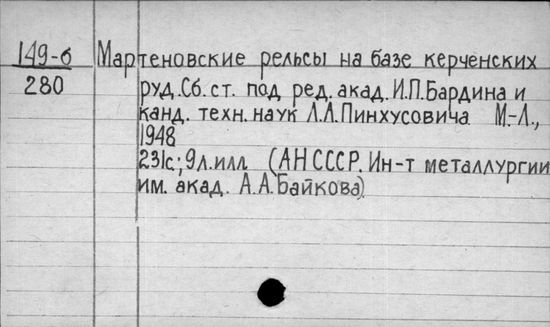 149-б Мартеновские рельсы на базе керченских
280 руд. Сб. ст. под ред. акад. И.П. Бардина и
канд. техн. наук Л.А. Пинхусовича М.-Л.,
1948
231с; 9л. илл (АН СССР. Ин-т металлургии
им. акад. А.А. Байкова)